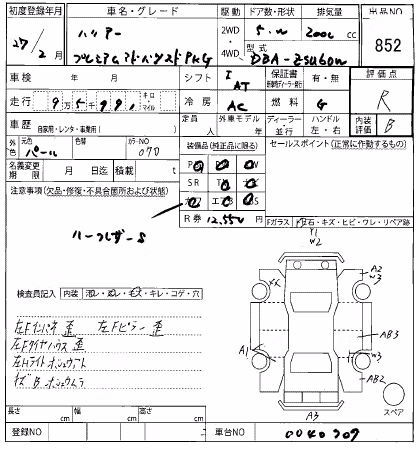 初度登録年月
27/2月
車名・グレード
ハリアー
プレミアムアドバンスドPKG
駆動 ドア数・形状 排気量
2WD・4WD 5.W 2000cc
型式 DBA-ZSU60W
出品NO
852
車検 年 月
シフト I AT
保証書 有・無
評価点 R
走行 9万5千991 キロ・マイル
冷房 AC
燃料 G
車歴 自家用・レンタ・事業用( )
定員 人
外車モデル 年
ディーラー 並行
ハンドル 左・右
内装評価 B
外色 元色 パール 色替 カラーNO 070
名義変更期限 月 日迄 積載 t
装備品(純正品に限る)
セールスポイント(正常に作動するもの)
注意事項(欠品・修復・不具合箇所および状態)
SR
エアB
R券 12,550
Fガラス 飛石・キズ・ヒビ・ワレ・リペア跡
ハーフレザーS
Y1
W2
A2
W3
検査員記入 内装 汚レ・スレ・キズ・キレ・コゲ・穴
左Fインパネ歪 左Fピラー歪
左Fタイヤハウス歪
左Hライト
A1
AB3
W3
AB2
A3
スペア
長さ cm 幅 cm 高さ cm
登録NO
車台NO 0040707